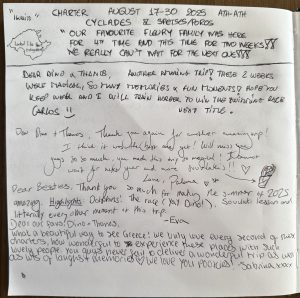 "Charter August 17-30 2025 Ath-Ath
Cyclades & Spetses/Poros
"Our favourite Fleury family was here
for 4th time and this time for two weeks!!
We really can't wait for the next one!!!
Dear Dino & Thanos, Another amazing trip!! These 2 weeks
were magical, so many memories & fun moments! Hope you
keep well and I will train harder to win the swimming race
next title.
Carlos !!
Dear Dino + Thanos, Thank you again for another amazing trip!
I think it was the best one yet! Will miss you
guys so so much, you made this trip so magical! I cannot
wait for next year and more
Love, Paloma
Dear Besties, Thank you so much for making me summer of 2025
amazing. Highlights: Dolphins! The race (Yay Dino!), Souvlaki lesson and
literally every other moment of this trip.
-Eva
Dear our Dino + Thanos,
What a beautiful way to see Greece! We truly love every second of these
charters, how wonderful to experience these places with such
lovely people. You guys never fail to deliver a wonderful trip as well
as lots of laughs + memories! We love you
Sabrina xxx